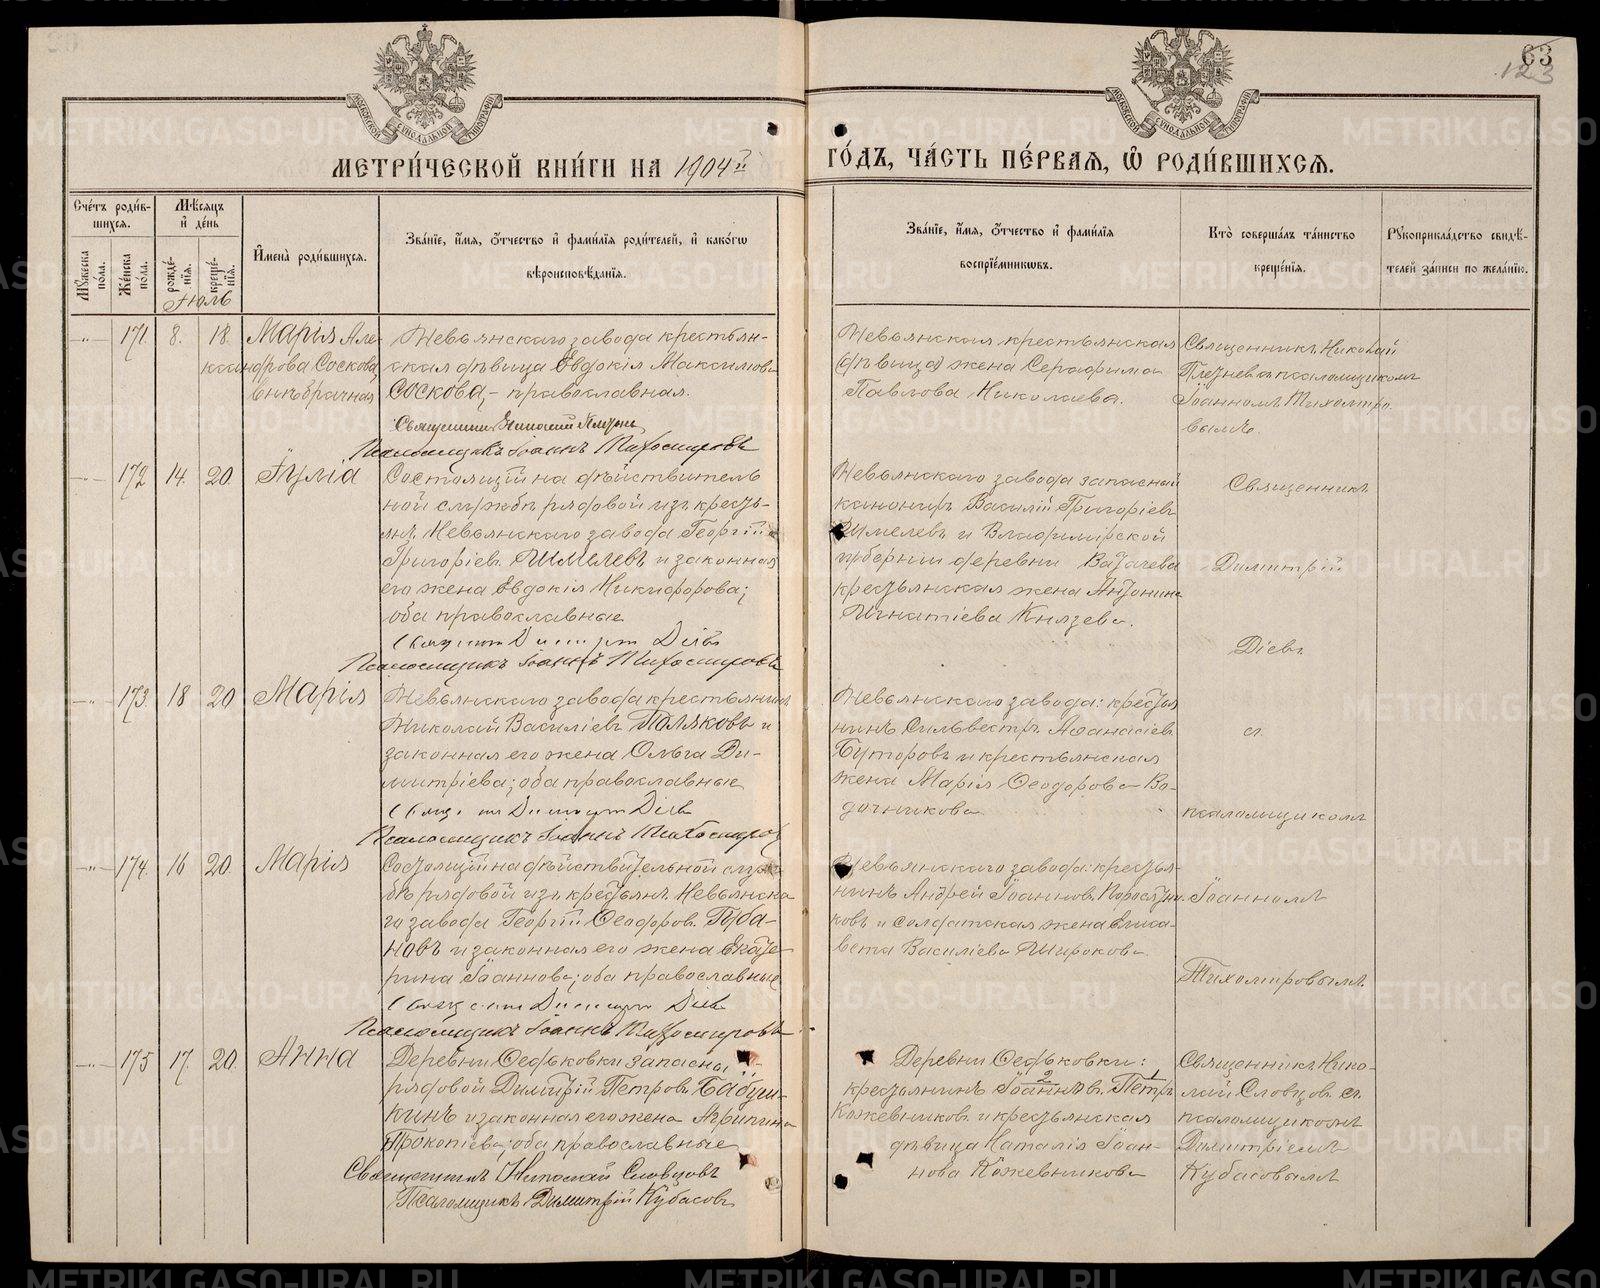 63
123
МЕТРИ́ЧЕСКОЙ КНИ́ГИ НА 1904й ГО́ДЪ, ЧА́СТЬ ПЕ́РВАЯ, Ѽ РОДИ́ВШИХСѦ.
Сче́тъ роди́вшихся.
Мѣ́сяцъ и҆ де́нь
Мꙋ́жеска по́ла.
Же́нска по́ла.
рожде́нїя.
креще́нїя.
И҆мена̀ роди́вшихся.
Зва́нїе, и҆́мя, ѻ҆́тчество и҆ фами́лїя роди́телей, и҆ како́гѡ
вѣроисповѣ́данїя.
Зва́нїе, и҆́мя, ѻ҆́тчество и҆ фами́лїя
воспрїе́мникѡвъ.
Кто̀ соверша́лъ та́инство
креще́нїя.
Рꙋкоприкла́дство свидѣ́-
телей за́писи по жела́нїю.
Іюль
171. 8. 18. Марія Але-
ксандрова Соскова,
внѣбрачная
Невьянскаго завода крестьян-
ская дѣвица Евдокія Максимова
Соскова,- православная.
Священникъ Николай
Псаломщикъ Іоаннъ Тихомировъ
Невьянская крестьянская
(дѣвица) жена Серафима
Павлова Николаева.
Священникъ Николай
псаломщикомъ
Іоанномъ Тихомиро-
вымъ.
172 14. 20. Іулія
Состоящій на дѣйствитель
ной службѣ рядовой изъ кресть-
янъ Невьянскаго завода Георгій
Григоріевъ Шмелевъ и законная
его жена Евдокія Никифорова;
оба православные
Священникъ Димитрій Діевъ
Псаломщикъ Іоаннъ Тихомировъ
Невьянскаго завода запасный
канониръ Василій Григоріевъ
Шмелевъ и Владимірской
губерніи деревни
крестьянская жена Антонина
Игнатіева Князева.
Священникъ
Димитрій
Діевъ
173 18 20 Марія
Невьянскаго завода крестьянинъ
Николай Василіевъ Поляковъ и
законная его жена Ольга Ди-
митріева; оба православные
Священникъ Димитрій Діевъ
Псаломщикъ Іоаннъ Тихомировъ
Невьянскаго завода: кресть
нинъ Сильвестръ Аѳанасіевъ
Буторовъ и крестьянская
жена Марія Ѳеодорова Во-
дочникова
съ
псаломщикомъ
174. 16 20. Марія
Состоящій на дѣйствительной служ-
бѣ рядовой изъ крестьянъ Невьянска-
го завода Георгій Ѳеодоровъ Губа-
новъ и законная его жена Екате-
рина Іоаннова; оба православные
Священникъ Димитрій Діевъ
Псаломщикъ Іоаннъ Тихомировъ
Невьянскаго завода: крестья-
нинъ Андрей Іоанновъ
ковъ и солдатская жена Елиса-
вета Василіева Широкова.
Іоанномъ
Тихомировымъ
175 17. 20. Анна
Деревни Ѳедьковки запасный
рядовой Димитрій Петровъ Бабуш-
кинъ и законная его жена Агрипина
Прокопіева; оба православные
Священникъ Николай Словцовъ
Псаломщикъ Димитрій Кубасовъ
Деревни Ѳедьковки:
крестьянинъ Іоанновъ Петръ
Кожевниковъ и крестьянская
дѣвица Наталія Іоан-
нова Кожевникова
Священникъ Нико-
лай Словцовъ съ
псаломщикомъ
Димитріемъ
Кубасовымъ
METRIKI.GASO-URAL.RU